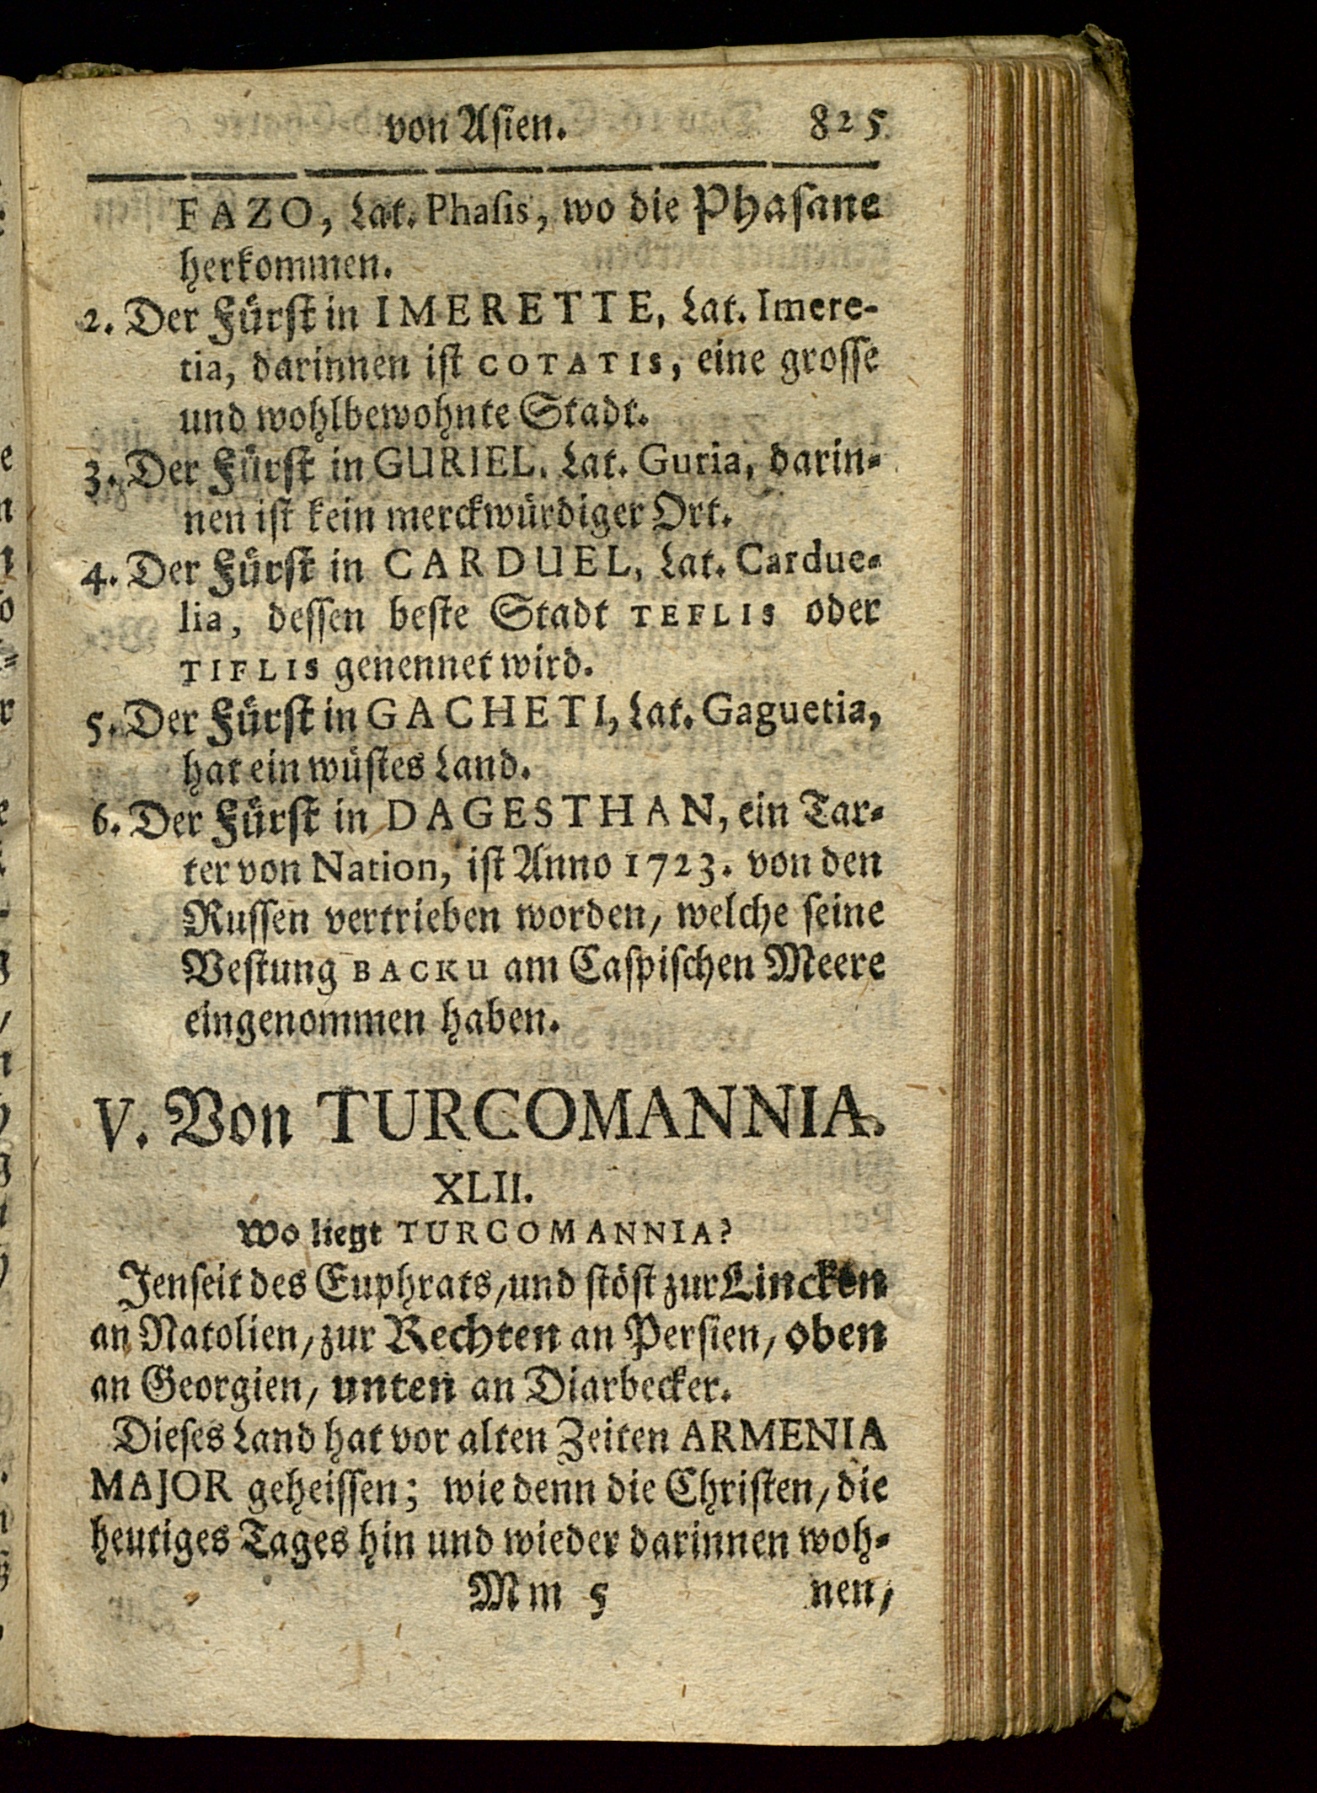 von Asien. 825
FAZO, Lat. Phasis, wo die Phasane
herkommen.
2. Der Fürst in IMERETTE, Lat. Imere-
tia, darinnen ist COTATIS, eine grosse
und wohlbewohnte Stadt.
3. Der Fürst in GURIEL. Lat. Guria, darin-
nen ist kein merckwürdiger Ort.
4. Der Fürst in CARDUEL, Lat. Cardue-
lia, dessen beste Stadt TEFLIS oder
TIFLIS genennet wird.
5. Der Fürst in GACHETI, Lat. Gaguetia,
hat ein wüstes Land.
6. Der Fürst in DAGESTHAN, ein Tar-
ter von Nation, ist Anno 1723. von den
Russen vertrieben worden, welche seine
Vestung BACKU am Caspischen Meere
eingenommen haben.
V. Von TURCOMANNIA.
XLII.
Wo liegt TURCOMANNIA?
Jenseit des Euphrats, und stöst zur Lincken
an Natolien, zur Rechten an Persien, oben
an Georgien, unten an Diarbecker.
Dieses Land hat vor alten Zeiten ARMENIA
MAJOR geheissen; wie denn die Christen, die
heutiges Tages hin und wieder darinnen woh-
Mm 5 nen,